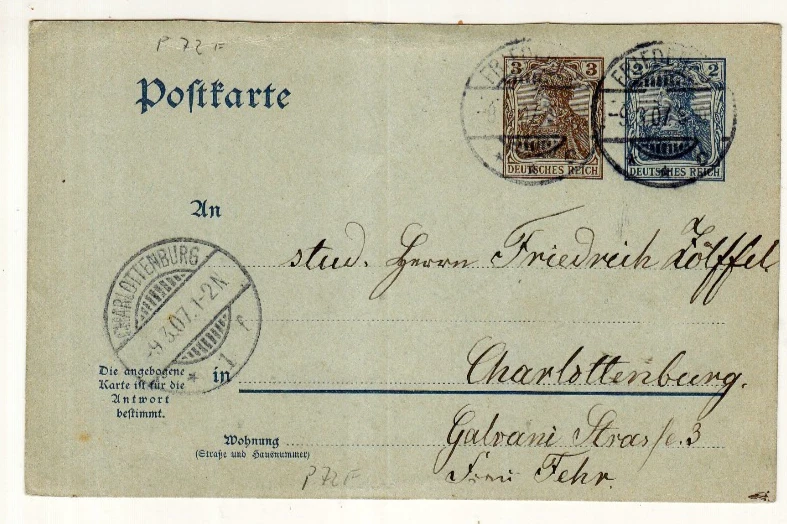 P 72 F
Postkarte
3 3
DEUTSCHES REICH
2 2
DEUTSCHES REICH
-9.3.07.
An
CHARLOTTENBURG
-9.3.07.1-2N
* 1 f
stud. Herrn Friedrich Zölffel
Die angebogene
Karte ist für die
Antwort
bestimmt.
in Charlottenburg.
Wohnung
(Straße und Hausnummer)
Galvani Strasse. 3
Frau Fehr.
P 72 F